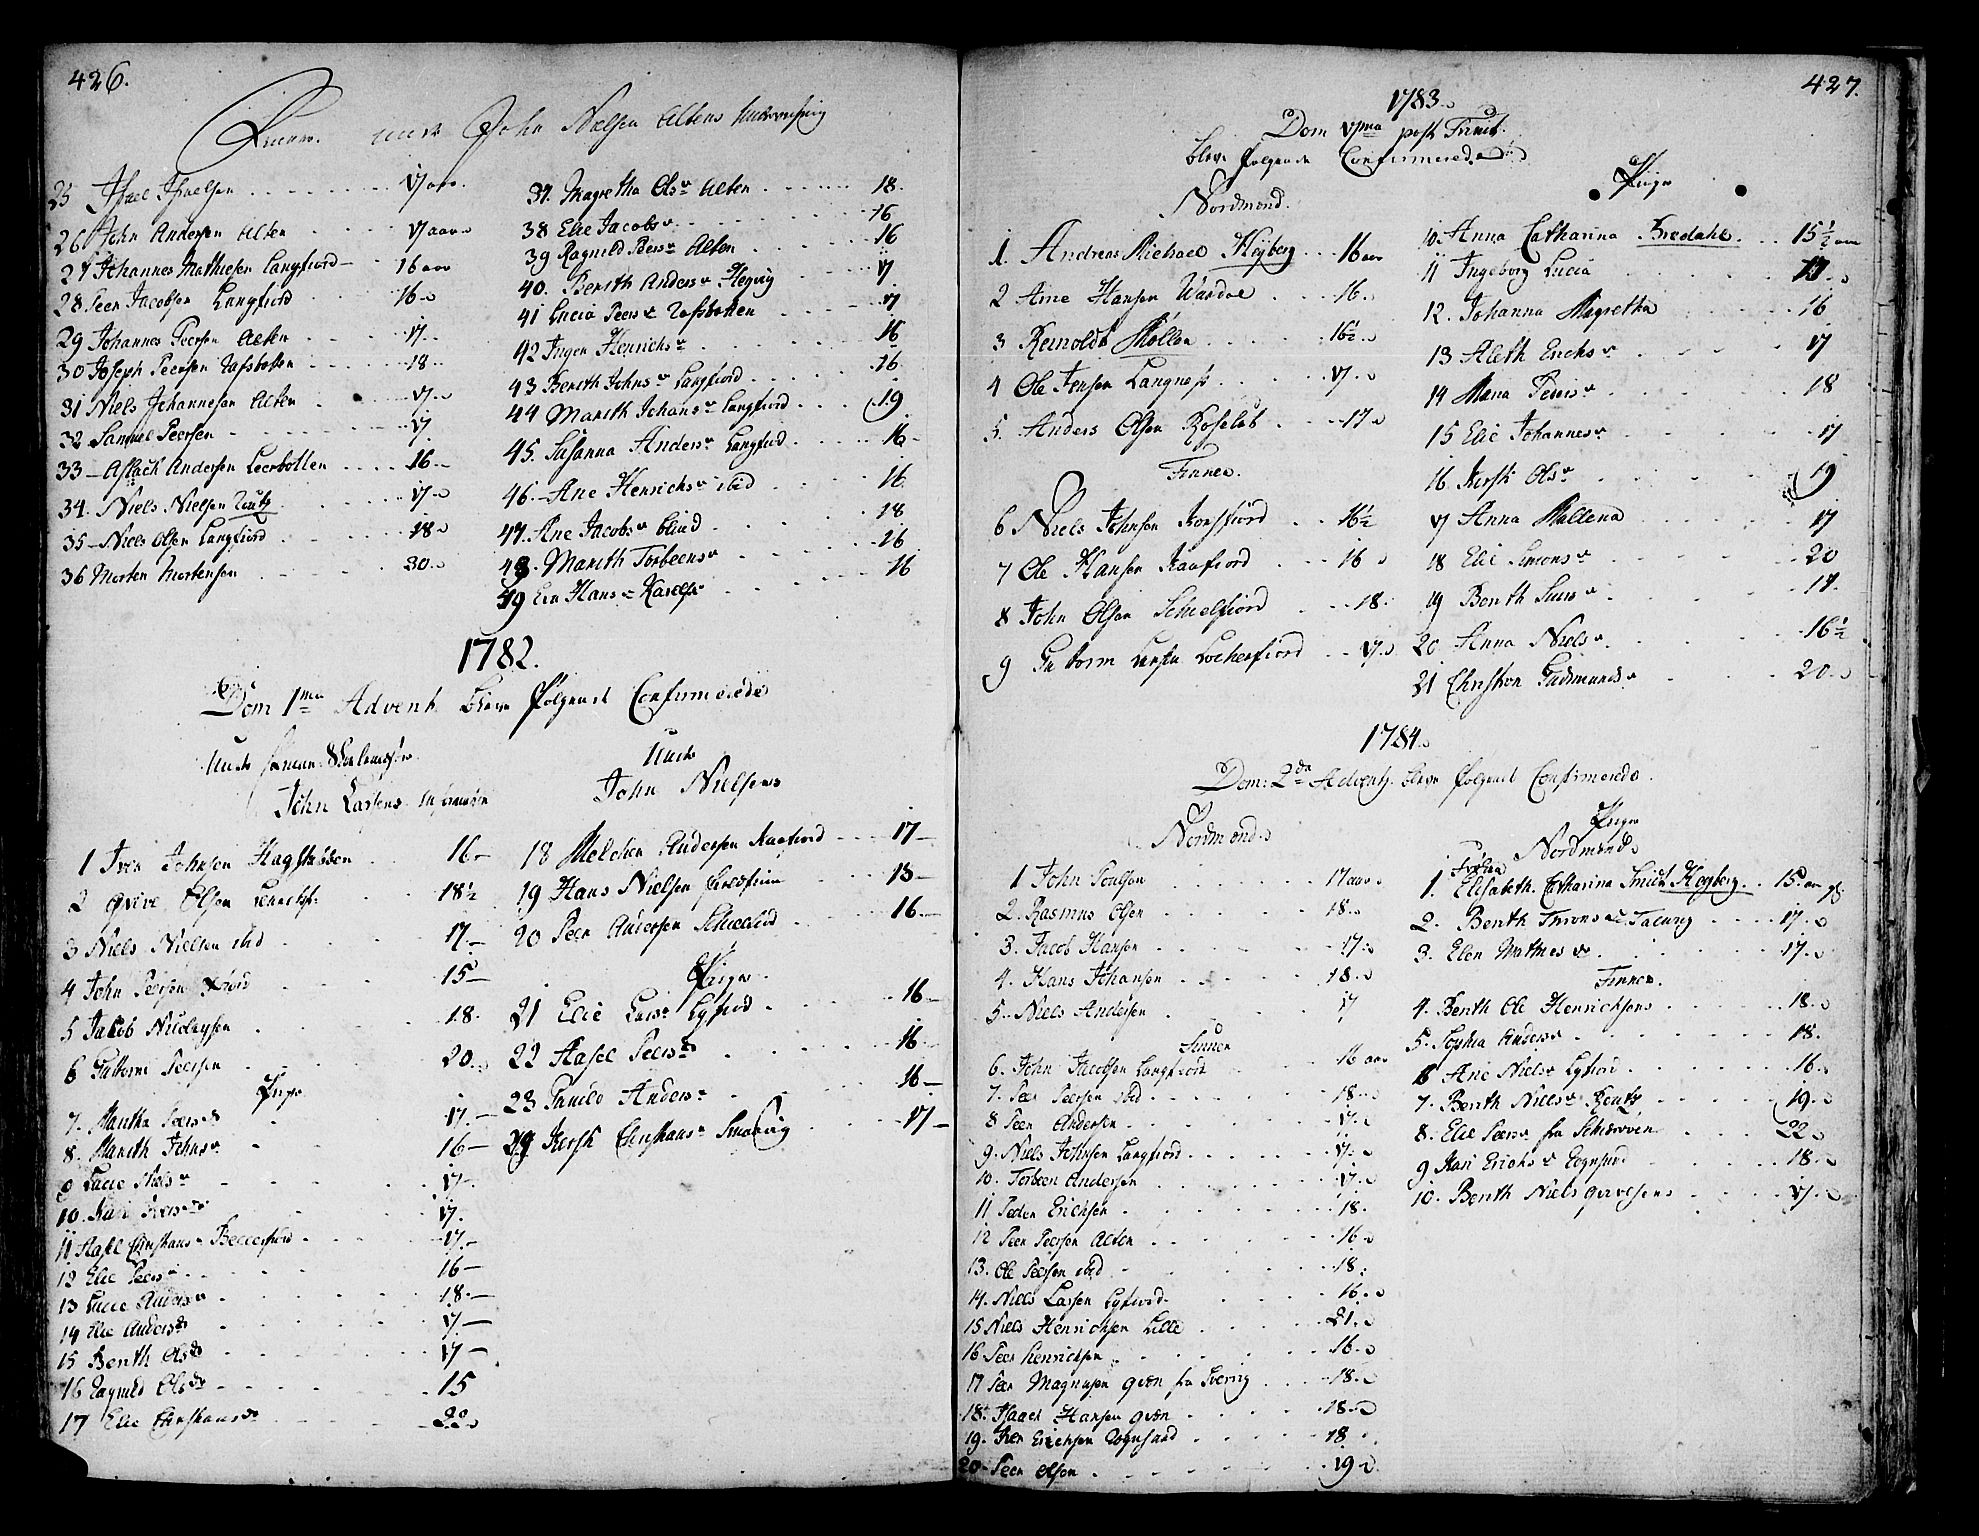 426.
Finner under John Nielsen Altens Underviisning
25 Isael Isaelsen 17 aar.
26 John Andersen Alten 17 aar
27 Johannes Mathiesen Langfiord 16 aar
28 Peer Jacobsen Langfiord 16
29 Johannes Peersen Alten 17
30 Joseph Peersen Rafsbotten 18
31 Niels Johannesen Alten 17
32 Samuel Peersen 17
33 Aslach Andersen Leerbotten 16
34. Niels Nielsen Reutz 17
35 Niels Olsen Langfiord 18
36 Morten Mortensen 30
37. Magretha Olsr Alten 18.
38 Elie Jacobsr 16
39 Ragnild Peersr Alten 16
40. Benith Andersr 17
41 Lucia Peersr Rafsbotten 17
42 Inger Henrichsr 16
43 Berith Johnsr Langfiord 16
44 Marith Johansr Langfiord 19
45. Susanna Andersr Langfiord 16
46. Ane Henrichsr ibid 16
47. Ane Jacobsr blind 18
48. Marith Torbeensr 16
49 Hansr 16
1782.
Dom 1ma Advent bleve følgende Confirmerede
John Larsens Information
Under
John Nielsens
1 Iver Johnsen 16
2 Olsen 18½
3 Niels Nielsen ibid 17
4 John Peersen 15
5 Jacob Nicolaysen 18.
6 Guttorm Peersen 20
Piger
7. Peersdr 17
8. Marith Johnsr 16
9 Lucie Nielsr 17
10. Kari 17.
11 Christansr Beckerfiord 17
12 Elie Peersr 16
13 Lucie Andersr 18.
14 Elie Andersdr 17
15 Berith Olsdr 17
16 Ragnild Olsdr 15
17 Elie Christansdr 20
18 Melchior Andersen Kaafiord 17
19 Hans Nielsen 18
20 Peer Andersen 16
Piger
21 Elie Larsr Lyfiord 16
22 Peersdr 16
23 Andersr 16
24 Kirsti Christansr Smalvig 17
427.
1783.
Dom 7ma post Trinit.
bleve følgende Confirmerede
Nordmænd.
1. Andreas Michael Heyberg 16 aar
2 Arne Hansen Wardøe 16.
3 Reinoldt Møller 16½
4 Ole Jensen Langnæs 17
5. Anders Olsen 17
Finner.
6 Niels Johnsen Korsfiord 16½
7 Ole Hansen Kaafiord 16
8 John Olsen 18.
9 Guttorm Larsen Locherfiord 17.
Piger
10. Anna Catharina Bredahl 15½ aar
11 Ingeborg Lucia 17
12. Johanna Magretha 16
13 Aleth Erichsr 17
14 Maria Pedersr 18
15 Elie Johannesr 17
16 Kirsti Olsr 19
17 Anna Mallena 17
18 Elie Simonsr 20
19 Berith 17.
20 Anna Nielsr 16½
21 Christen Gudmundsr 20
1784.
Dom: 2da Adventz. bleve følgende Confirmerede.
Nordmænd
1 John Poulsen 17 aar
2. Rasmus Olsen 18
3. Jacob Hansen 17
4. Hans Johansen 18
5. Niels Andersen 17
Finner
6. John Jacobsen Langfiord 16 aar
7. Peer Peersen ibid 18
8 Peer Andersen 17.
9. Niels Johnsen Langfiord 17.
10. Torbeen Andersen 17.
11 Peder Erichsen 18.
12 Peer Peersen Alten 16
13. Ole Peersen ibid 18.
14. Niels Larsen Lyfiord 16
15 Niels Henrichsen Lille 21.
16 Peer Henrichsen 16
17 Peer Magnusen qvæn fra Sverrig 18
18. Isaach Hansen qvæn 18
19. Iver Erichsen Rognsund 18
20. Peer Olsen 19
Piger
Nordmænd
1. Elisabeth Catharina Smidt Heyberg 15 aar
2. Berith 17
3. Elen Mathiesdr 17
Finner.
4. Berith Ole Henrichsens 18
5. Sophia Andersr 18.
6 Ane Nielsr Lyfiord 16
7. Berith Nielsr Reutz 19
8. Elie Peersr fra 22
9 Kari Erichsr Rognsund 18
10. Berith Niels 17